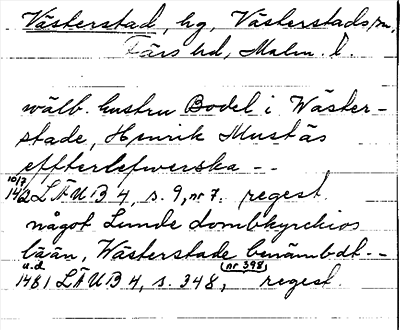 Västerstad, hg, Västerstads sn,
Färs hd, Malm. l.
wälb. hustru Bodel i Wäster-
stade, Henrik Mustäs
effterlefwerska - -
10/7
1412 LÄUB 4, s. 9, nr 7. regest.
något Lunde dombkyrckios
lään, Wästerstade benämbdt. - -
u.d. (nr 398)
1481 LÄUB 4, s. 348, regest.